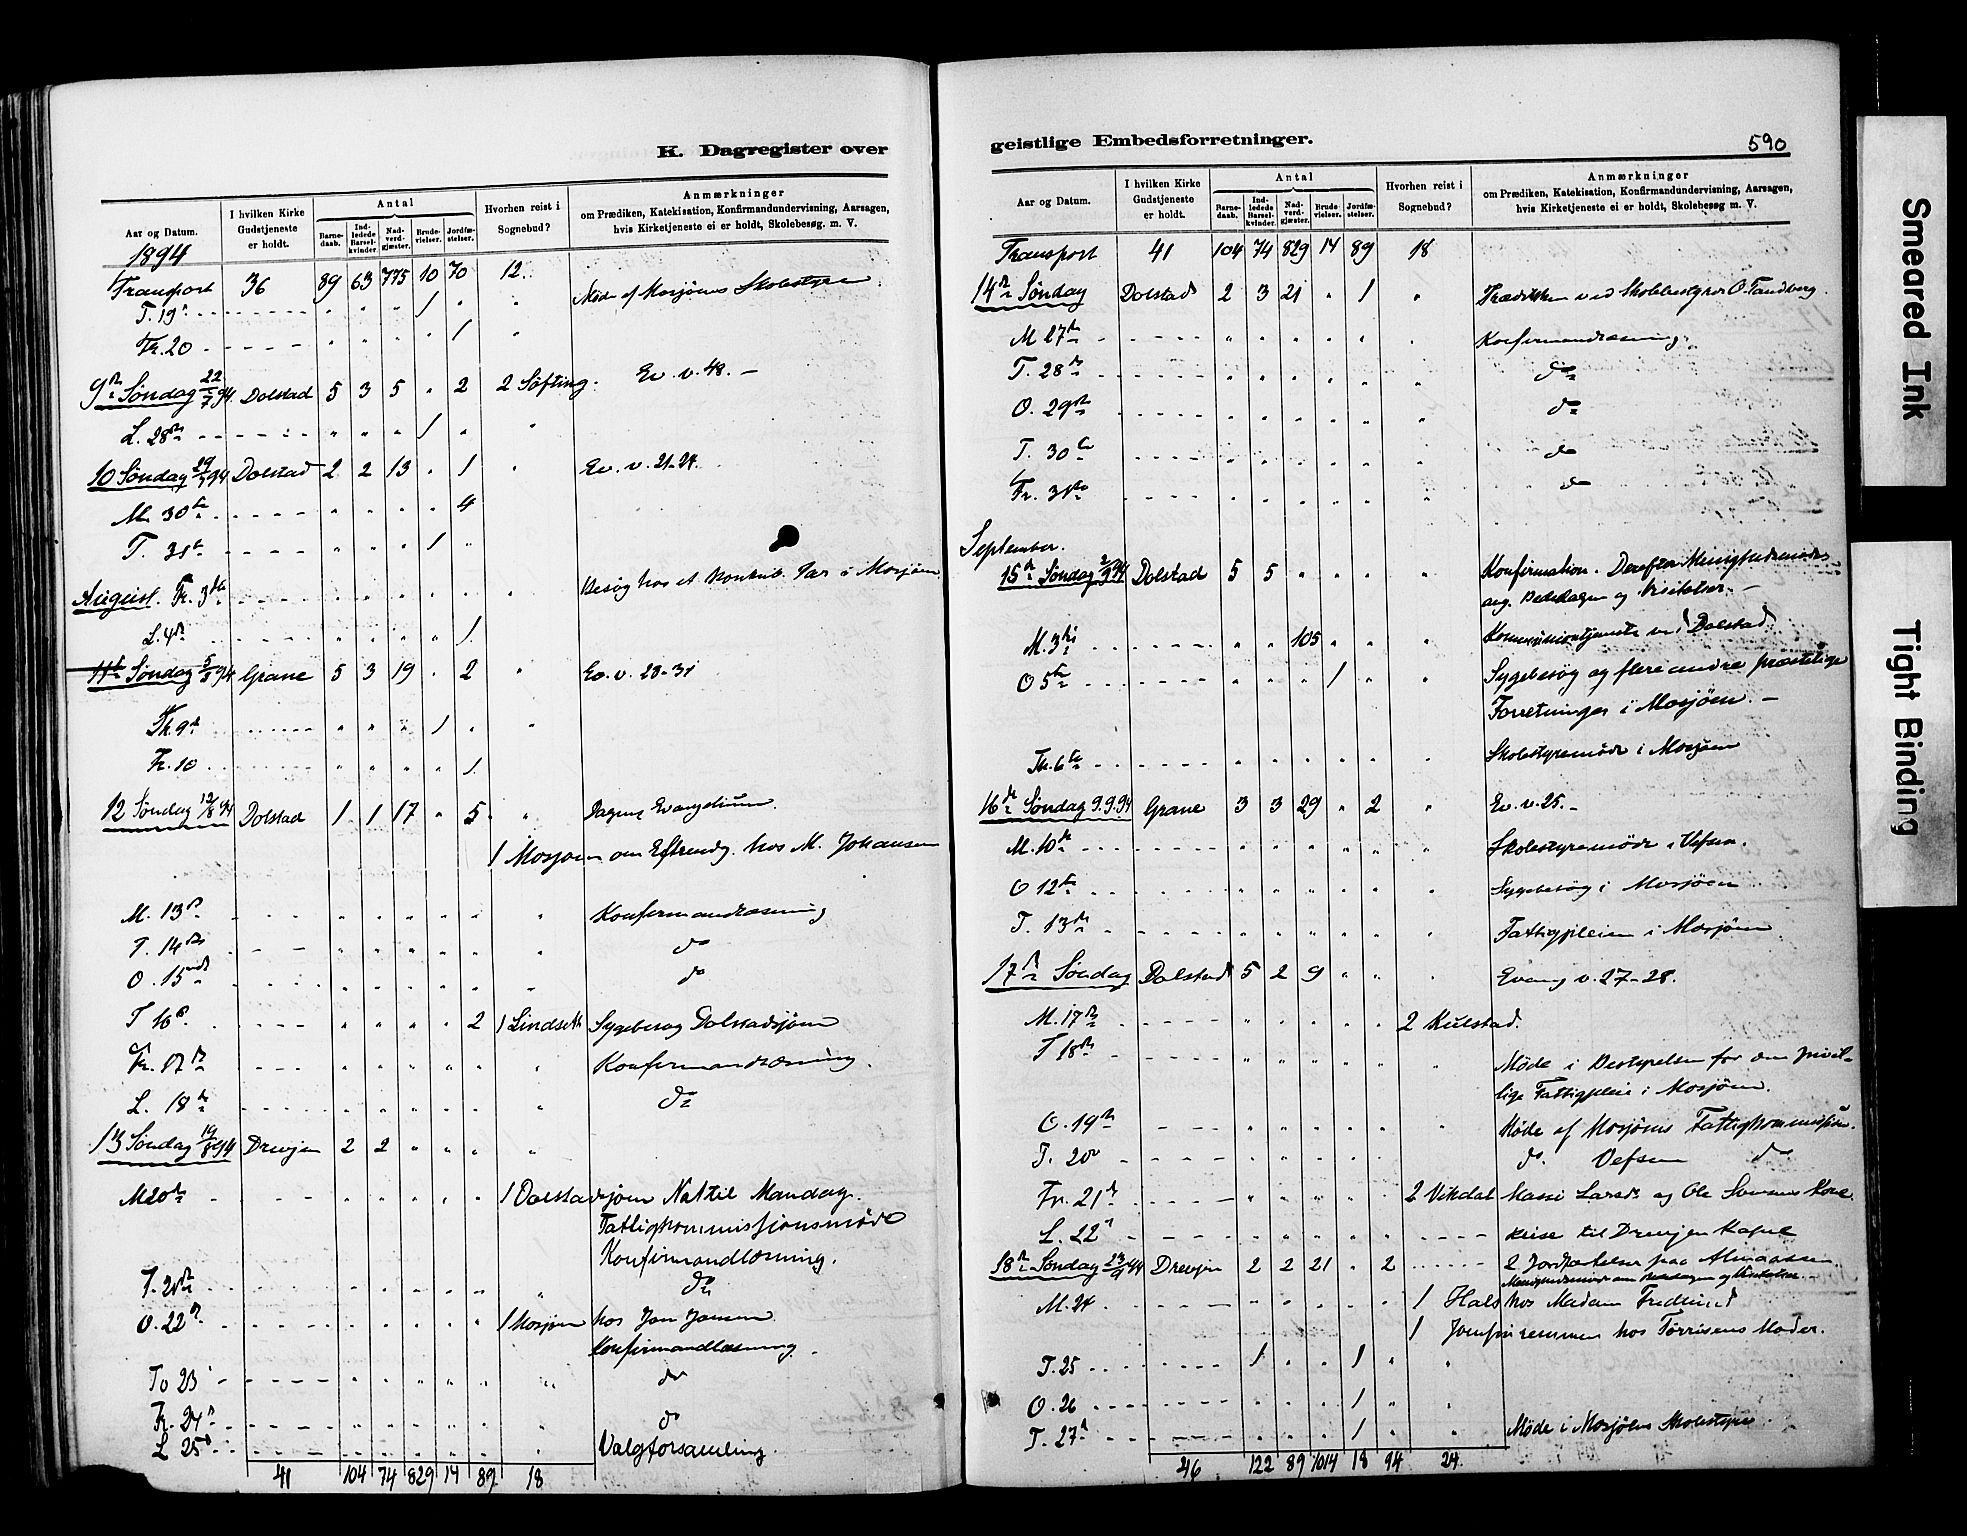 K. Dagregister over
Aar og Datum.
I hvilken Kirke Gudstjeneste er holdt.
Antal
Barne-daab.
Ind-ledede Barsel-kvinder.
Nad-verd-gjester.
Brude-vielser.
Jordfæ-stelser.
Hvorhen reist i Sognebud?
Anmærkninger
om Prædiken, Katekisation, Konfirmandundervisning, Aarsagen,
hvis Kirketjeneste ei er holdt, Skolebesøg m. V.
1894
Transport 36 89 63 775 10 70 12.
T. 19 1 Møde af Mosjøens Skolestyre
Fr. 20 1
9de Søndag 22/7 94 Dolstad 5 3 5 2 2 Søfting. Ev. v. 48. –
L. 28de 1
10 Søndag 29/7 94 Dolstad 2 2 13 1 Ev. v. 21-24
M. 30te 4
T. 31te 1
August. Fr. 3die Besøg hos et i Mosjøen
L. 4de 1
11te Søndag 5/8 94 Grane 5 3 19 2 Ev. v. 23-31
Th. 9de 1
Fr. 10 1
12 Søndag 12/8 94 Dolstad 1 1 17 5 Dagens Evangelium.
1 Mosjøen om Eftermdg. hos M. Johansen
M. 13de Konfirmandlæsning
T. 14de do
O. 15nde do
T 16de 2 1 Lindseth Sygebesøg Dolstadsjøen
Fr. 17de Konfirmandlæsning.
L. 18de do
13 Søndag 19/8 94 Drevjen 2 2
M 20de 1 Dolstadsjøen Nat til Mandag.
Fattigkommissjonsmøde
Konfirmandlæsning.
T. 21de do
O. 22de 1 Mosjøen hos Jon Jonsen
Konfirmandlæsning.
To 23 do
Fr. 24de do
L 25de Valgforsamling.
41 104 74 829 14 89 18
geistlige Embedsforretninger.
590
Aar og Datum.
I hvilken Kirke Gudstjeneste er holdt.
Antal
Barne-daab.
Ind-ledede Barsel-kvinder.
Nad-verd-gjester.
Brude-vielser.
Jordfæ-stelser.
Hvorhen reist i Sognebud?
Anmærkninger
om Prædiken, Katekisation, Konfirmandundervisning, Aarsagen,
hvis Kirketjeneste ei er holdt, Skolebesøg m. V.
Transport 41 104 74 829 14 89 18
14de Søndag Dolstad 2 3 21 1 Prædiken ved Skolebestyrer O. Tandberg.
M 27de Konfirmandlæsning.
T. 28de do
O. 29de do
T. 30te do
Fr. 31te do
September.
15de Søndag 2/9 94 Dolstad 5 5 Konfirmation. Derefter Menighedsmøde
ang. Bededagen og Visitatser. –
M. 3die 105 Kommuniontjeneste ved Dolstad
O 5te 1 Sygebesøg og flere andre præstelige
Forretninger i Mosjøen. –
Th. 6te Skolestyremøde i Mosjøen
16de Søndag 9.9.94 Grane 3 3 29 2 Ev. v. 25. –
M. 10de Skolestyremøde i Vefsen.
O 12te Sygebesøg i Mosjøen
T. 13de Fattigpleien i Mosjøen
17de Søndag Dolstad 5 2 9 Evang v. 27-28.
M. 17de 2 Kulstad.
T 18de Møde i Bestyrelsen for den frivil-
lige Fattigpleie i Mosjøen.
O. 19de Møde af Mosjøens Fattigkommission.
T. 20 do. Vefsen do
Fr. 21de 2 Vikdal og Ole
L. 22de Reise til Drevjen Kapel
18de Søndag 23/9 94 Drevjen 2 2 21 2 2 Jordfæstelser paa
Menighedsmøde om Bededagen og Visitatser
M. 24 1 Hals hos Madam Fredlund
1 hos Tørrisens Moder.
T. 25 1 1
O. 26 1
T. 27de 1 Møde i Mosjøens Skolestyre.
46 122 89 1014 18 94 24
Smeared Ink
Tight Binding